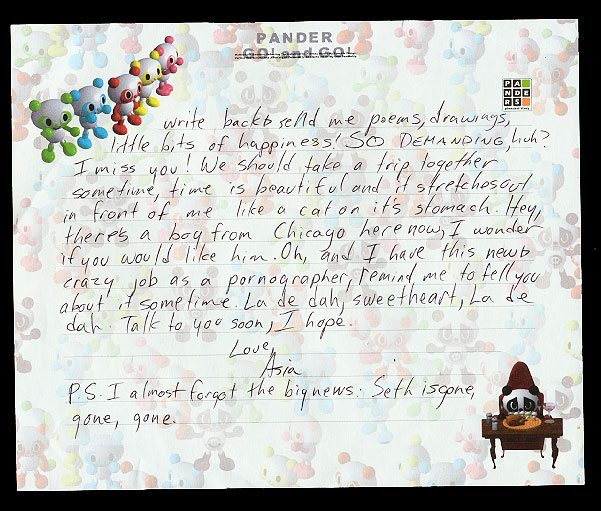 PANDER
GO! and GO!
PAN
DE
RS
write back & send me poems, drawings,
little bits of happiness! SO DEMANDING, huh?
I miss you! We should take a trip together
sometime, time is beautiful and it stretches out
in front of me like a cat on it's stomach. Hey,
there's a boy from Chicago here now, I wonder
if you would like him. Oh, and I have this new
crazy job as a pornographer, remind me to tell you
about it sometime. La de dah, sweetheart, La de
dah. Talk to you soon, I hope.
Love,
Asia
P.S. I almost forgot the big news: Seth is gone,
gone, gone.